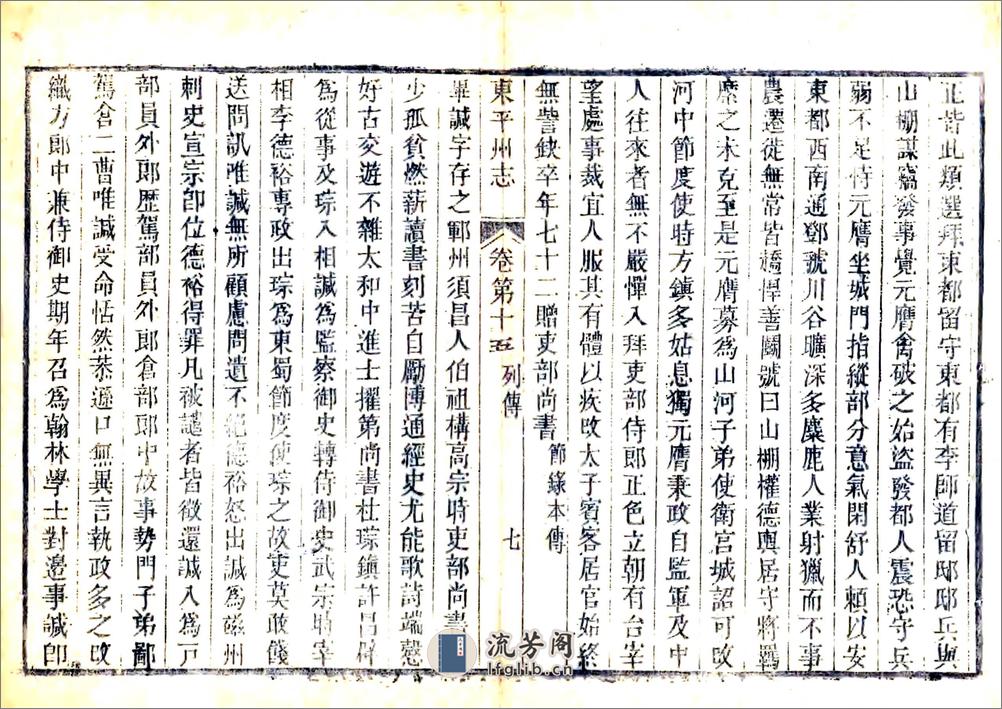 正皆此類選拜東都留守東都有李師道留邸邸兵與
山棚謀竊發事覺元膺禽破之始盜發都人震恐守兵
弱不足恃元膺坐城門指縱部分意氣閑舒人賴以安
東都西南通鄧虢川谷曠深多麋鹿人業射獵而不事
農遷徙無常皆趫悍善鬬號曰山棚權德輿居守將羈
縻之未克至是元膺募為山河子弟使衛宮城詔可改
河中節度使時方鎮多姑息獨元膺秉政自監軍及中
人往來者無不嚴憚入拜吏部侍郎正色立朝有台宰
望處事裁宜人服其有體以疾改太子賓客居官始終
無訾缺卒年七十二贈吏部尚書 節錄本傳
東平州志 卷第十五 列傳 七
畢諴字存之鄆州須昌人伯祖構高宗時吏部尚書
少孤貧燃薪讀書刻苦自勵博通經史尤能歌詩端愨
好古交遊不雜太和中進士擢第尚書杜琮鎮許昌辟
為從事及琮入相諴為監察御史轉侍御史武宗時宰
相李德裕專政出琮為東蜀節度使琮之故吏莫敢餞
送問訊唯諴無所顧慮問遺不絕德裕怒出諴為磁州
刺史宣宗卽位德裕得罪凡被譴者皆徵還諴入為戶
部員外郎歷駕部員外郎倉部郎中故事勢門子弟鄙
駕倉二曹唯諴受命恬然恭遜口無異言執政多之改
職方郎中兼侍御史期年召為翰林學士對邊事諴卽
流芳阁
lfglib.cn